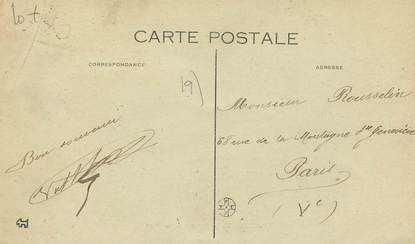 lot
CARTE POSTALE
CORRESPONDANCE
ADRESSE
19
Monsieur Rousselin
68 rue de la Montagne Ste Geneviève
Bon souvenir
Paris
(Ve)